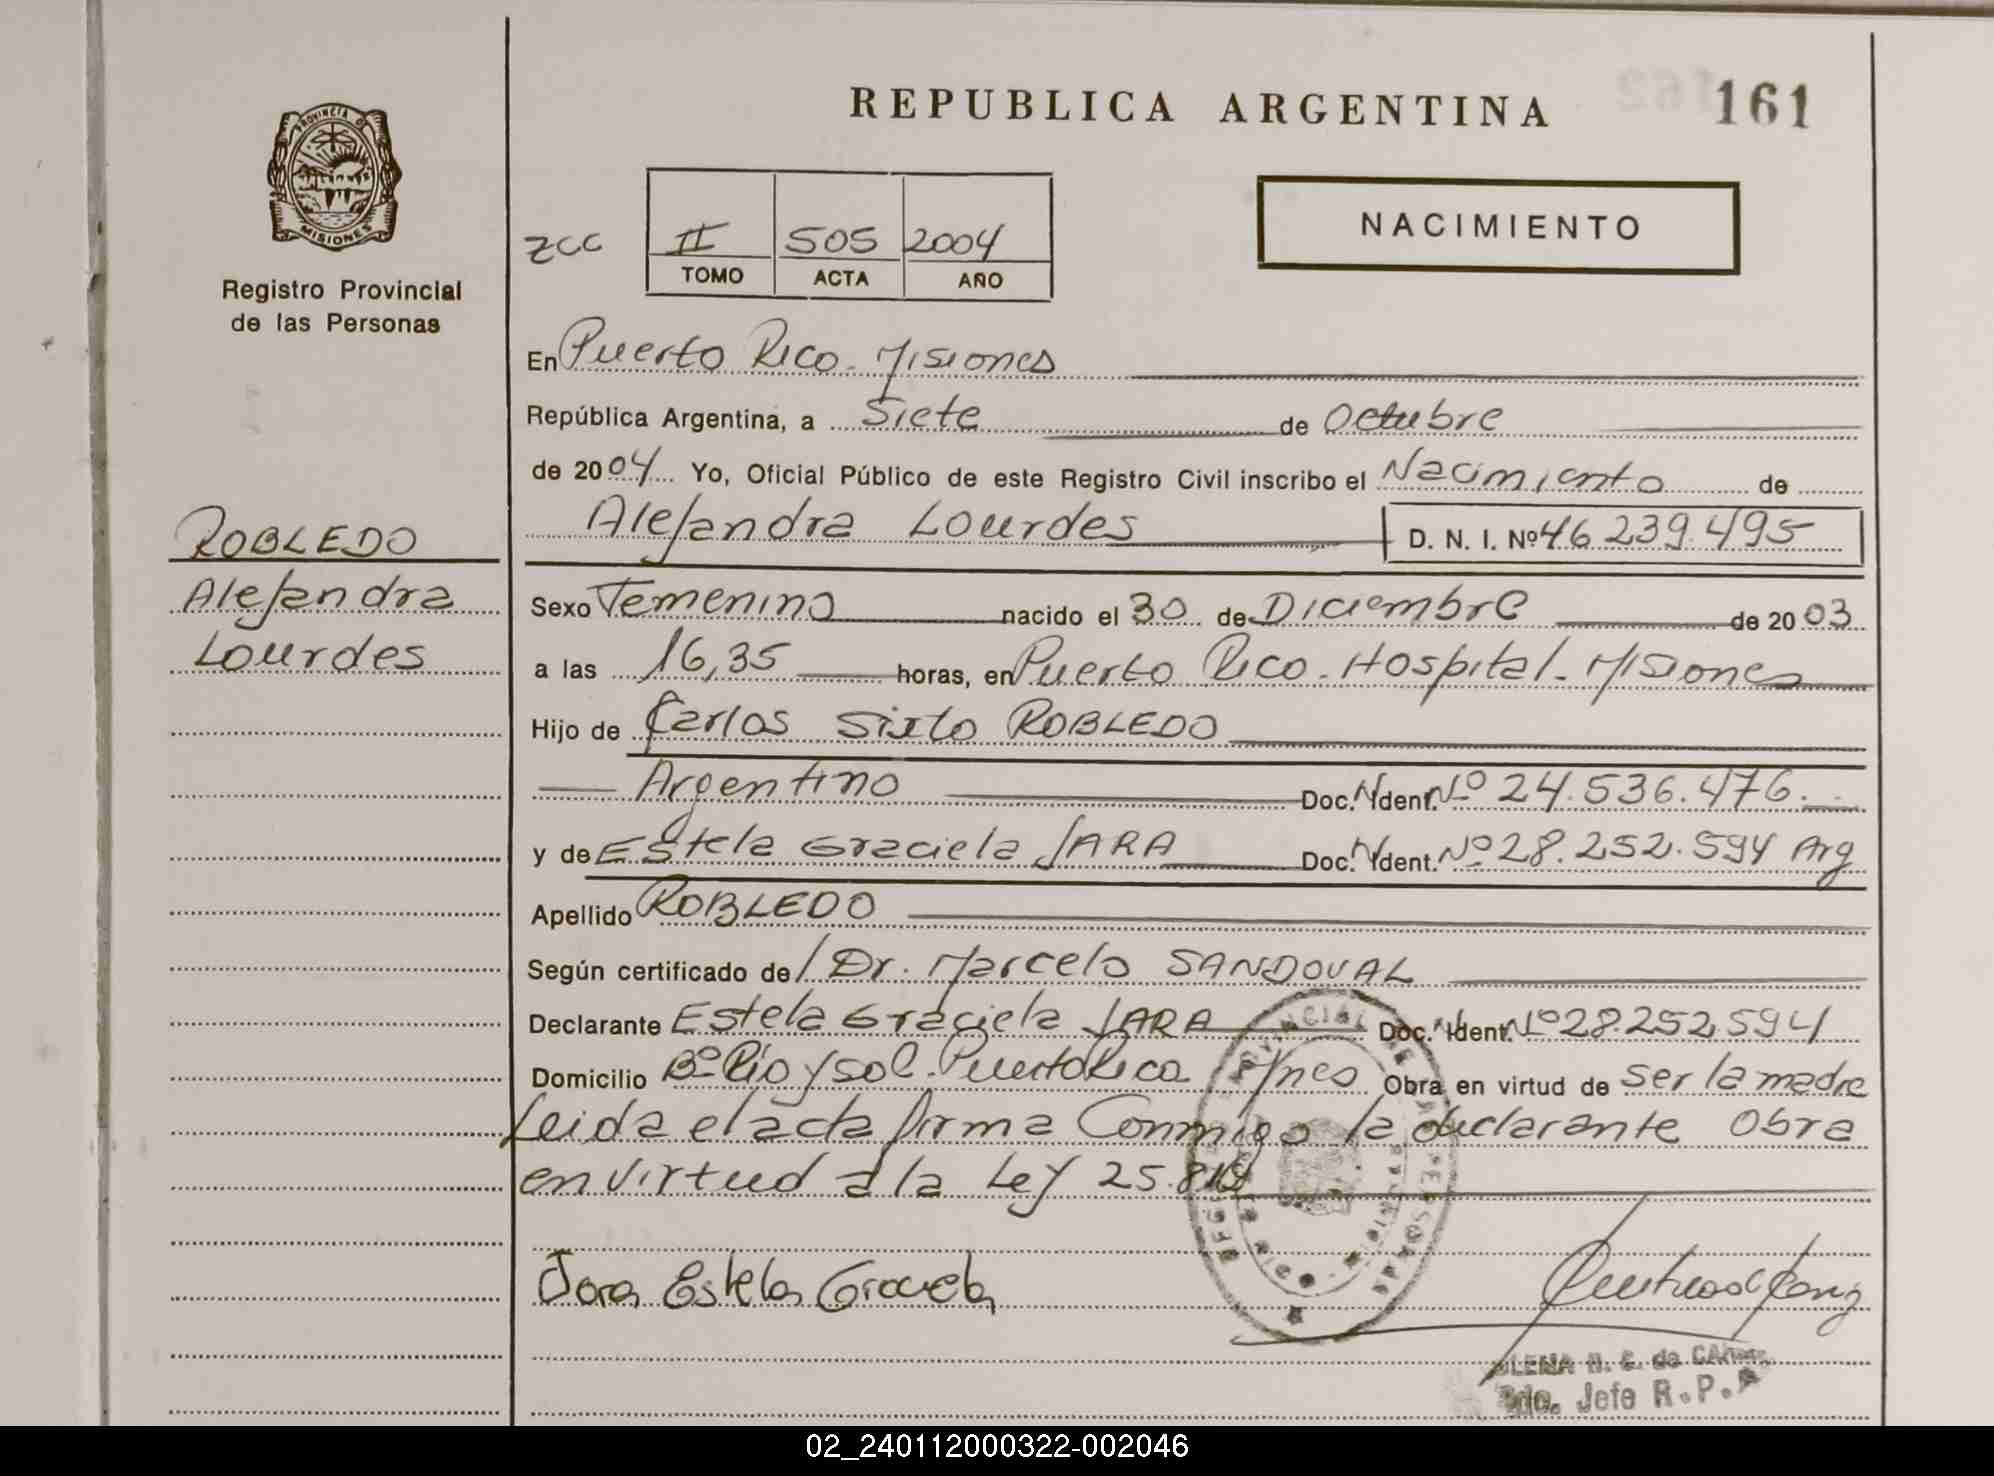 REPUBLICA ARGENTINA
161
PROVINCIA DE
MISIONES
Registro Provincial
de las Personas
ZCC
II 505 2004
TOMO ACTA AÑO
NACIMIENTO
En Puerto Rico - Misiones
República Argentina, a Siete de Octubre
de 2004 Yo, Oficial Público de este Registro Civil inscribo el Nacimiento de
Alejandra Lourdes D. N. I. Nº 46.239.495
ROBLEDO
Alejandra
Lourdes
Sexo Femenino nacido el 30 de Diciembre de 2003
a las 16,35 horas, en Puerto Rico - Hospital - Misiones
Hijo de Carlos Sixto ROBLEDO
Argentino Doc. N Ident. Nº 24.536.476.
y de Estela Graciela JARA Doc. N Ident. Nº 28.252.594 Arg
Apellido ROBLEDO
Según certificado de Dr. Marcelo SANDOVAL
Declarante Estela Graciela JARA Doc. N Ident. Nº 28.252.594
Domicilio Bº Río y Sol - Puerto Rico Mnes Obra en virtud de ser la madre
Leida el acta firma Conmigo la declarante Obra
en virtud a la Ley 25.819
Jara Estela Graciela
R. E. de
Jefe R. P.
02_240112000322-002046